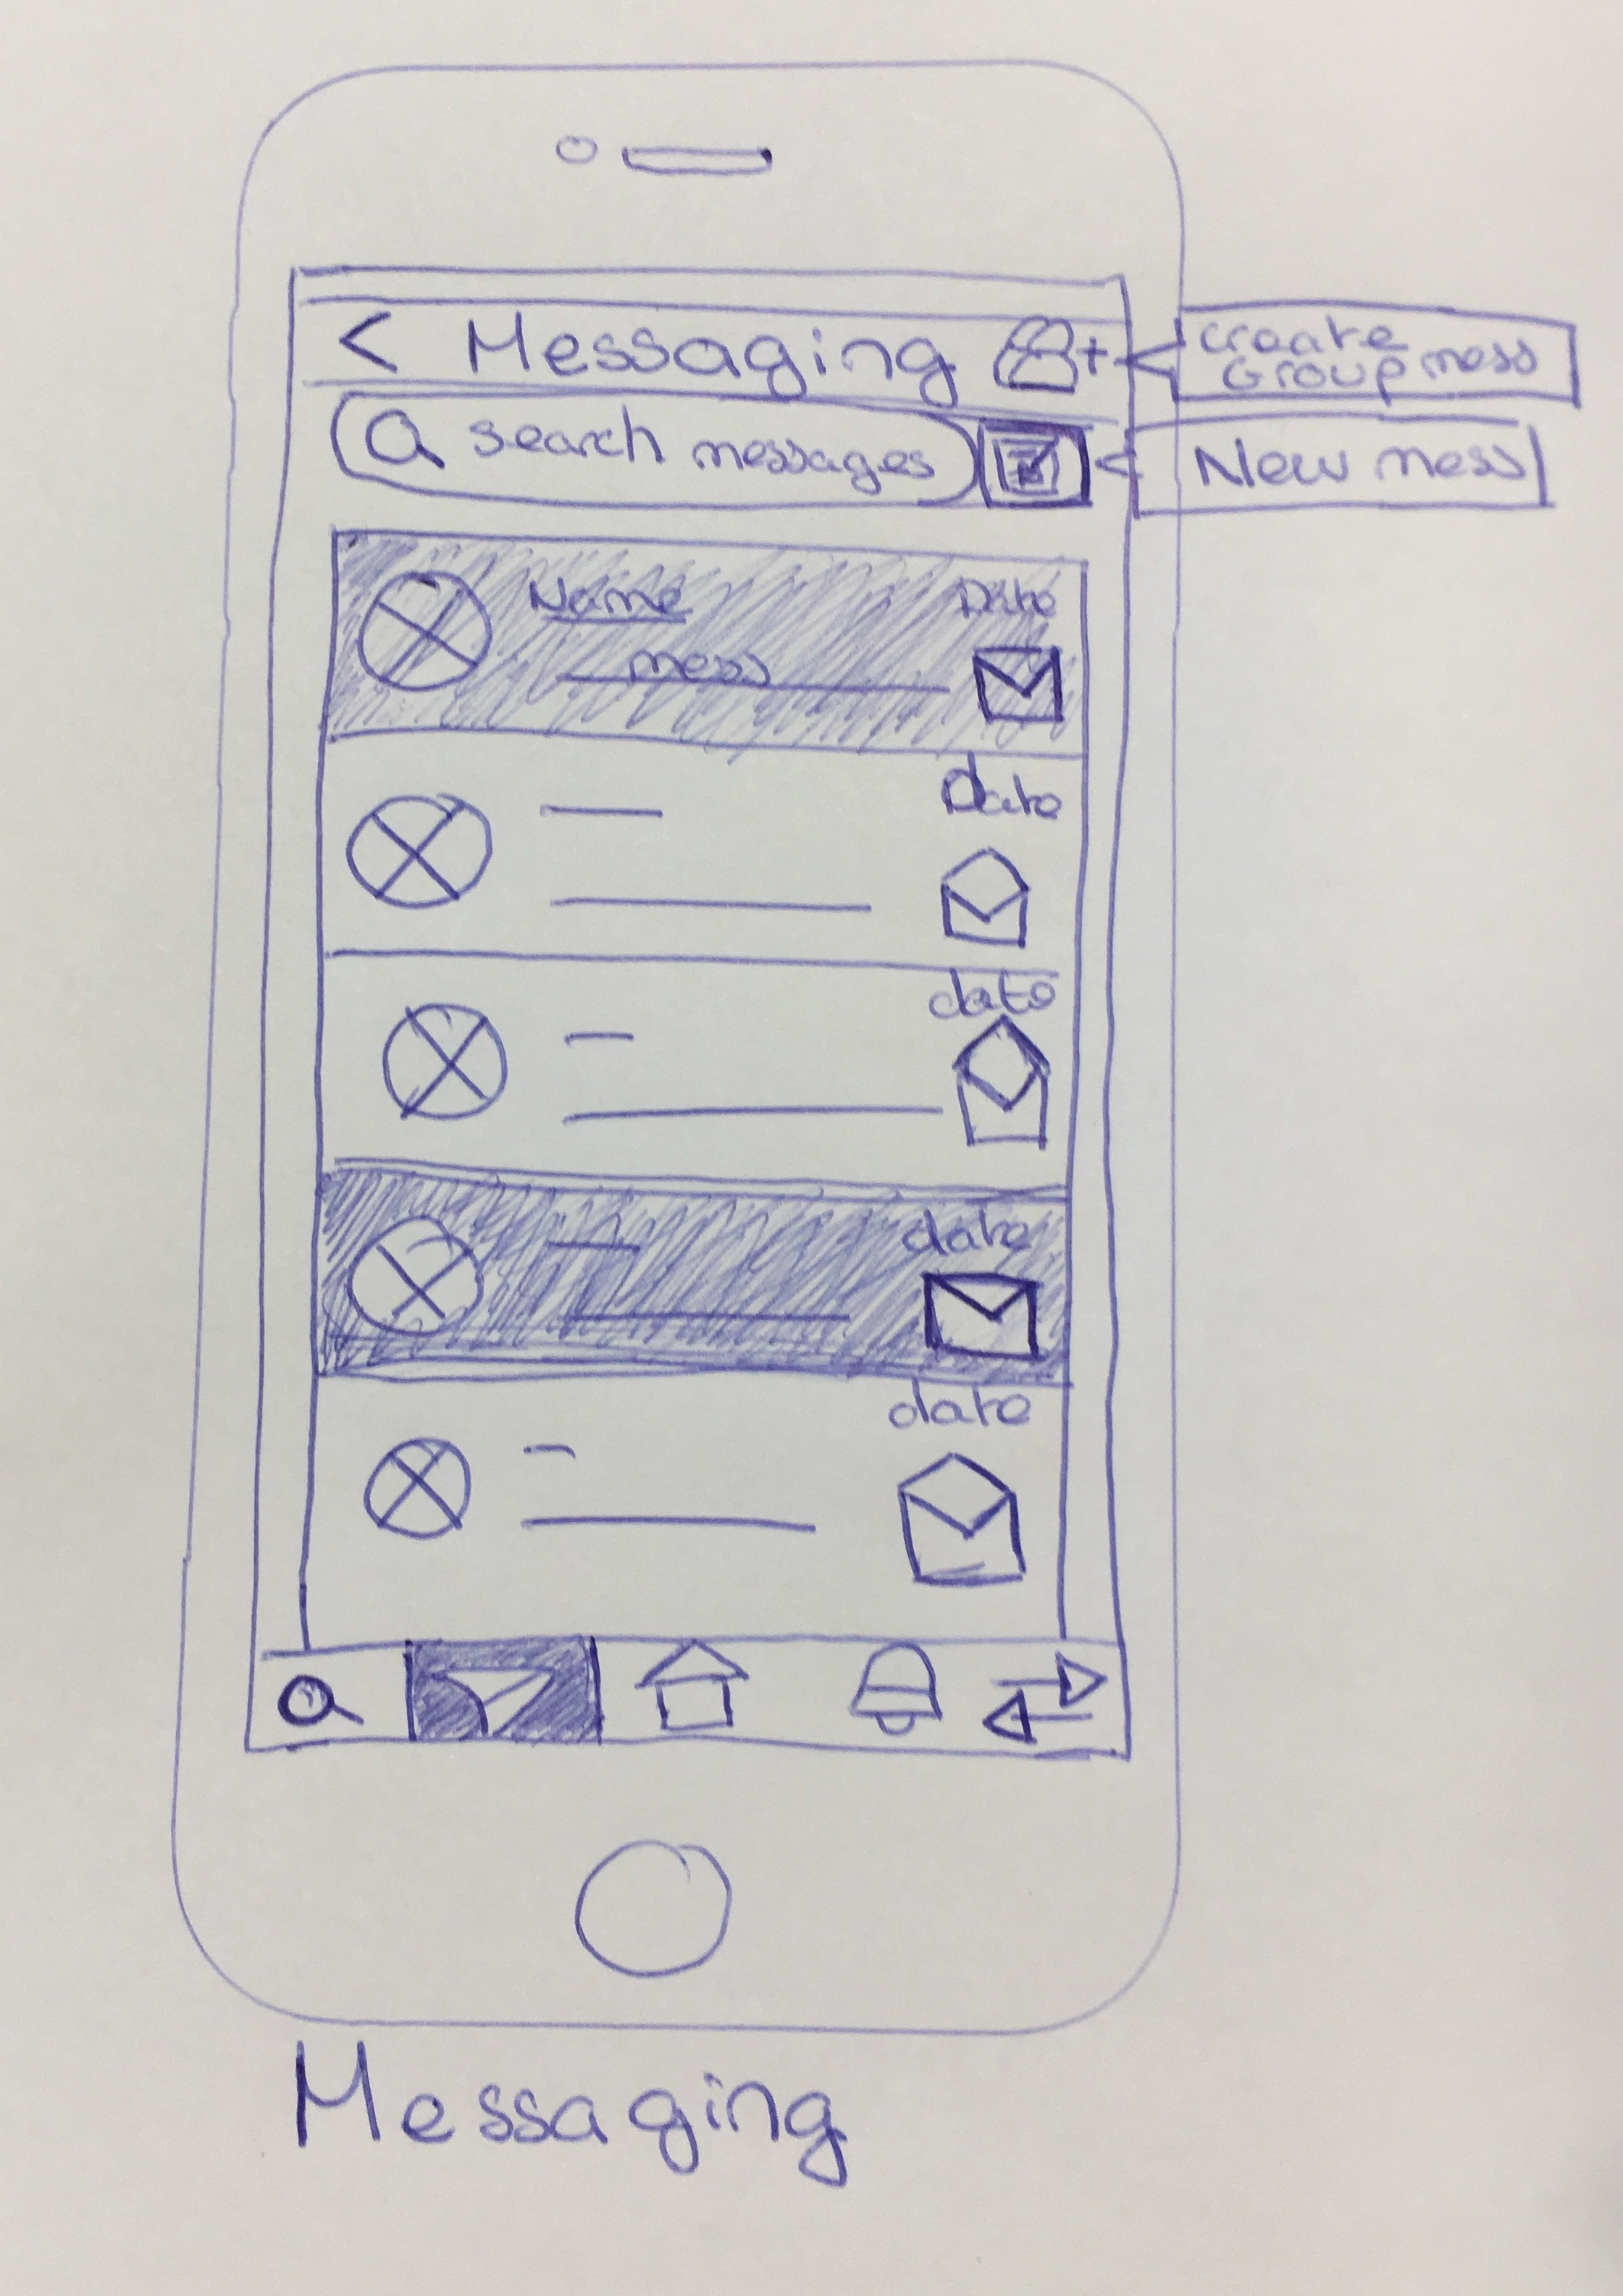 Messaging
create
Group mess
search messages
New mess
Name
Date
mess
Date
date
date
date
Messaging